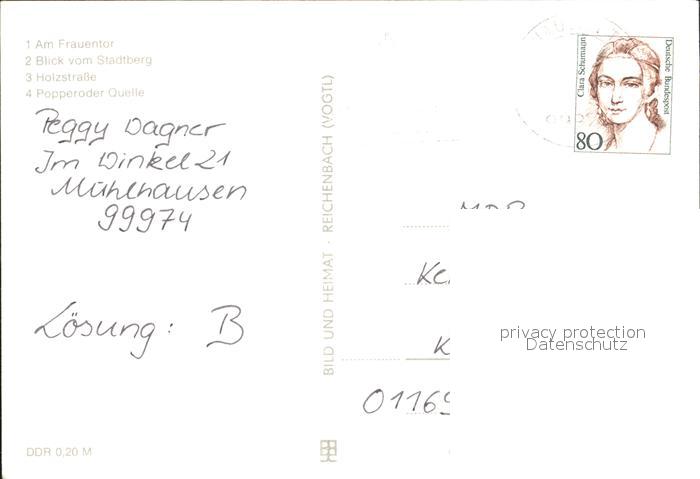 1 Am Frauentor
2 Blick vom Stadtberg
3 Holzstraße
4 Popperoder Quelle
Peggy Wagner
Im Winkel 21
Mühlhausen
99974
Lösung: B
DDR 0,20 M
BILD UND HEIMAT · REICHENBACH (VOGTL)
Clara Schumann
Deutsche Bundespost
80
Ke
K
01169
privacy protection
Datenschutz